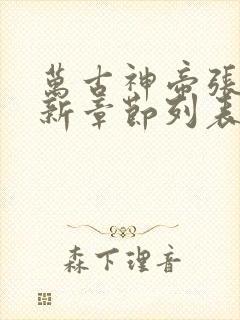 萬古神帝張
新章節列表
森下理音